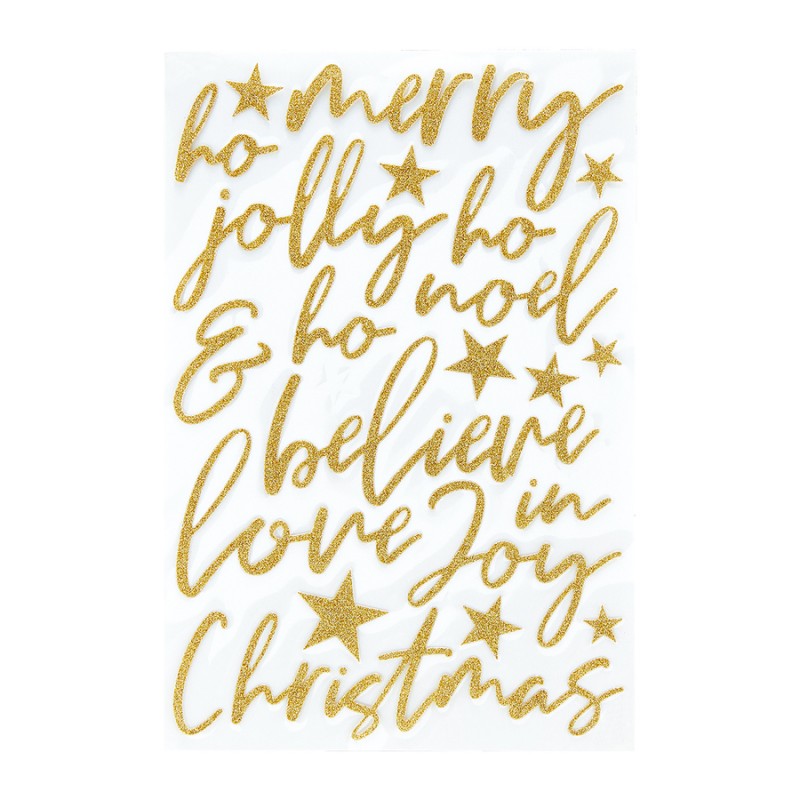 ho merry
jolly ho
& ho noel
believe
love Joy in
Christmas